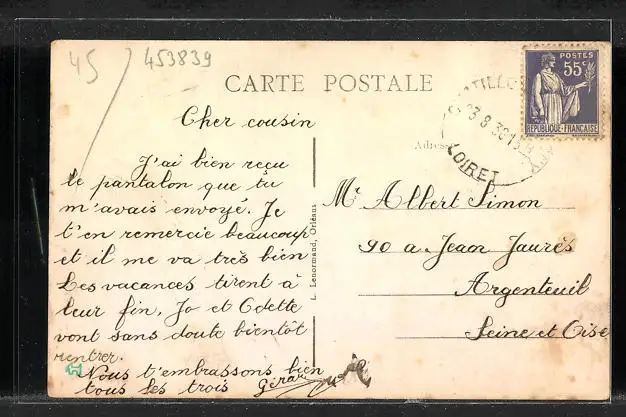 45
453839
CARTE POSTALE
POSTES
55c
REPUBLIQUE-FRANÇAISE
23-8 38
LOIRET
Adresse
Cher cousin
J'ai bien reçu
le pantalon que tu
m'avais envoyé. Je
t'en remercie beaucoup
et il me va très bien
Les vacances tirent à
leur fin. Jo et Odette
vont sans doute bientôt
rentrer.
Nous t'embrassons bien
tous les trois
Gérard
L. Lenormand, Orléans
Mr Albert Simon
90 a. Jean Jaurès
Argenteuil
Seine et Oise